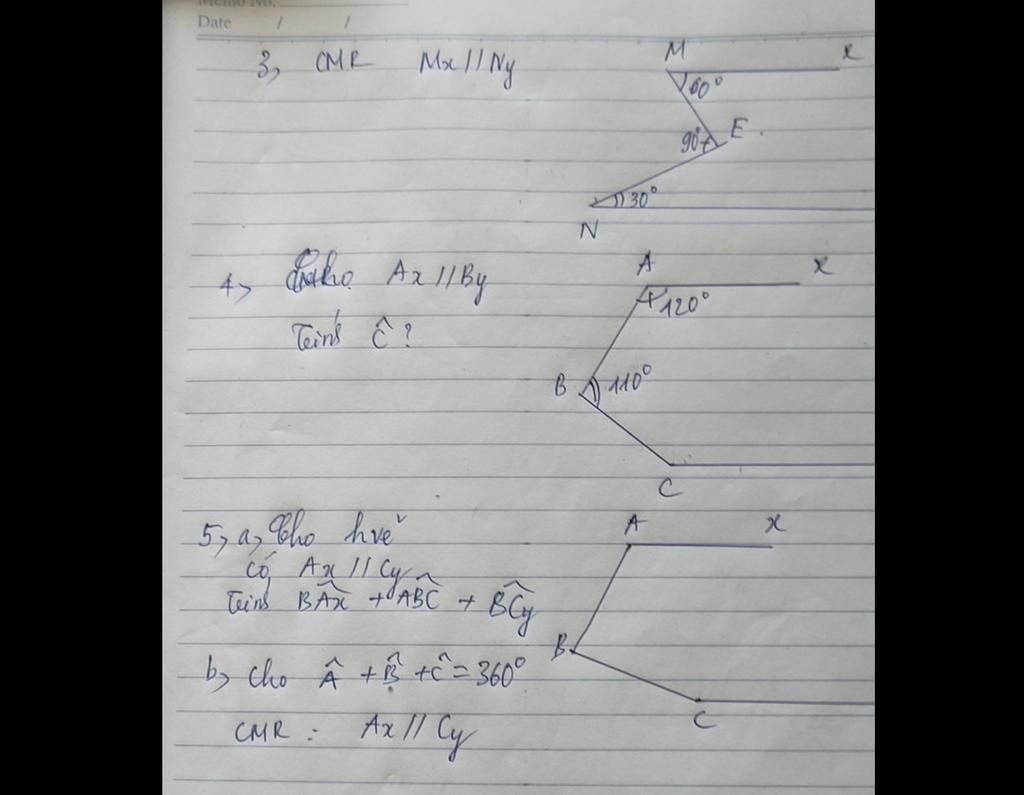 Memo No.
Date / /
3, CMR Mx // Ny
M x
60°
90° E
30°
N
4, Cho Ax // By
Tính Ĉ ?
A x
120°
B 110°
C
5, a, Cho hvẽ
có Ax // Cy
Tính BÂx + AB̂C + BĈy
b, Cho Â + B̂ + Ĉ = 360°
CMR : Ax // Cy
A x
B
C